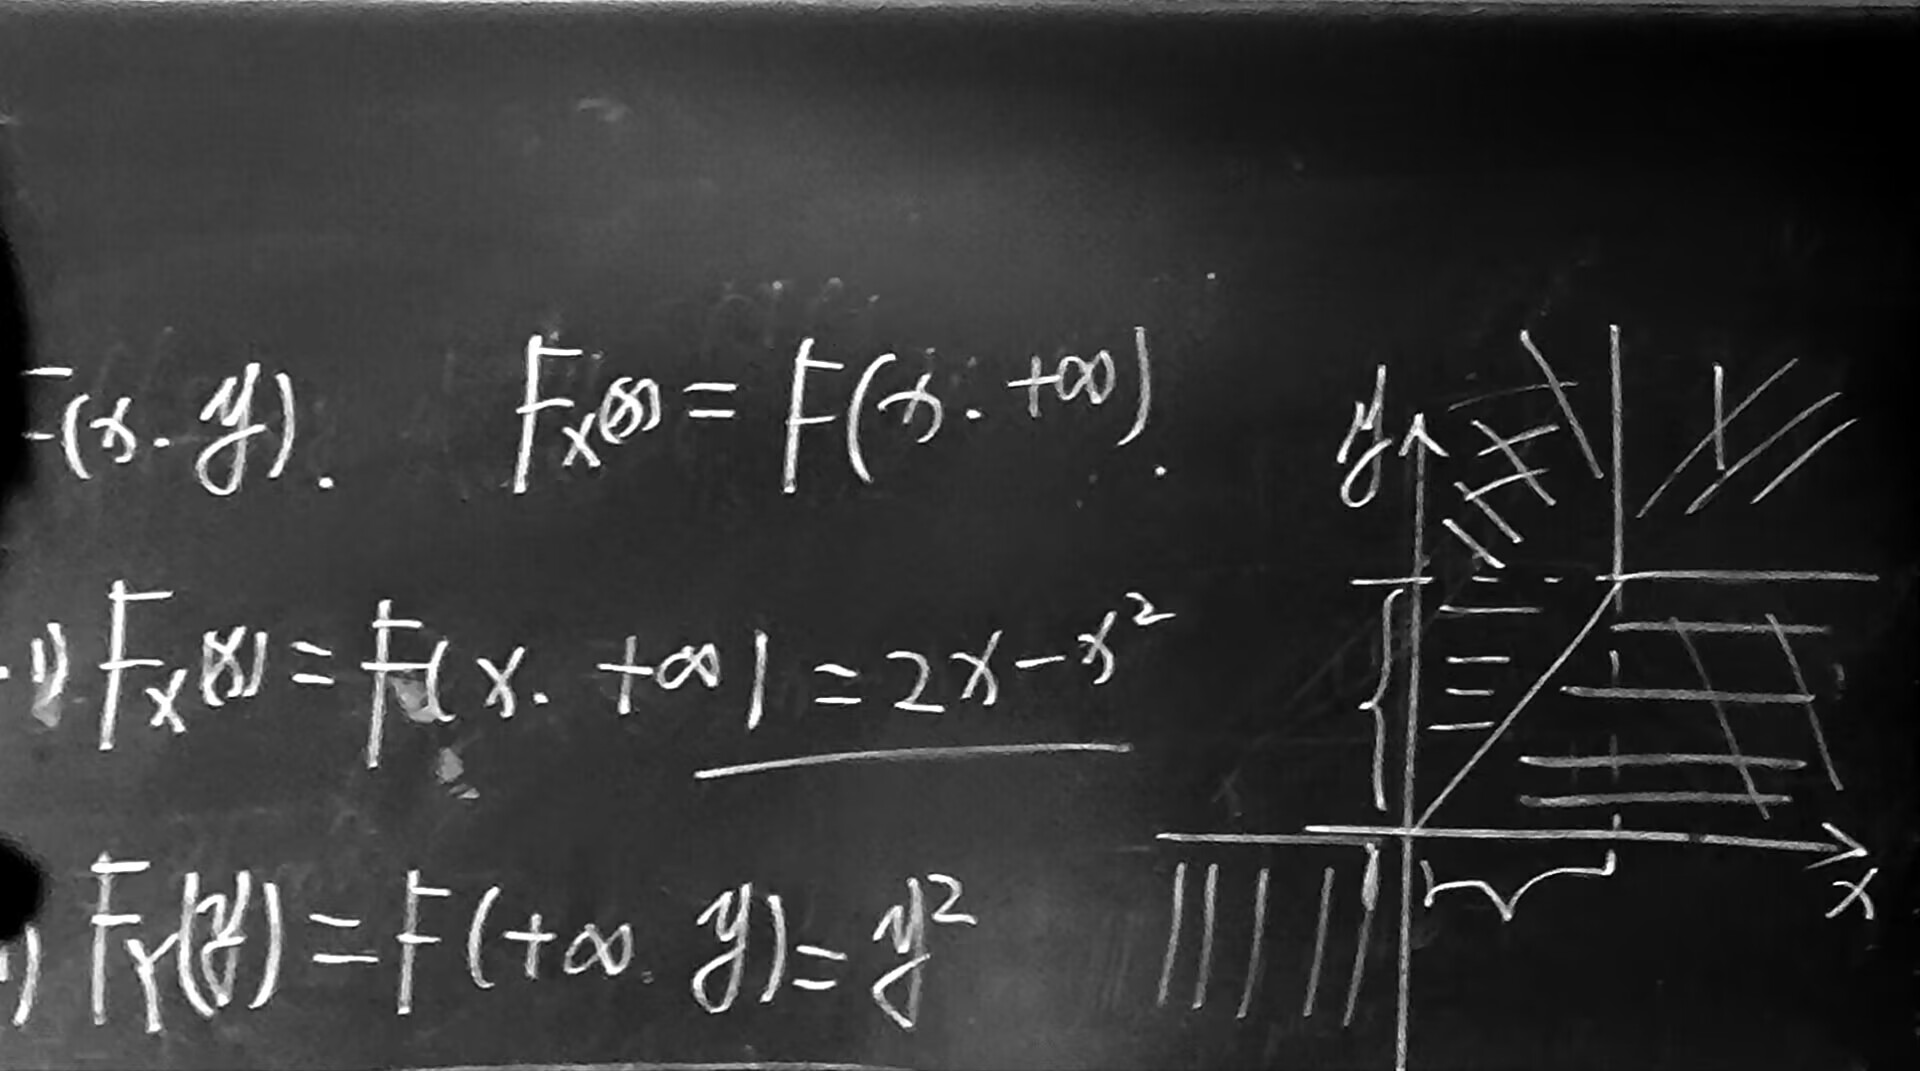 F(x. y). F_X(x) = F(x. +∞).
1) F_X(x) = F(x. +∞) = 2x - x²
) F_Y(y) = F(+∞. y) = y²
y
x